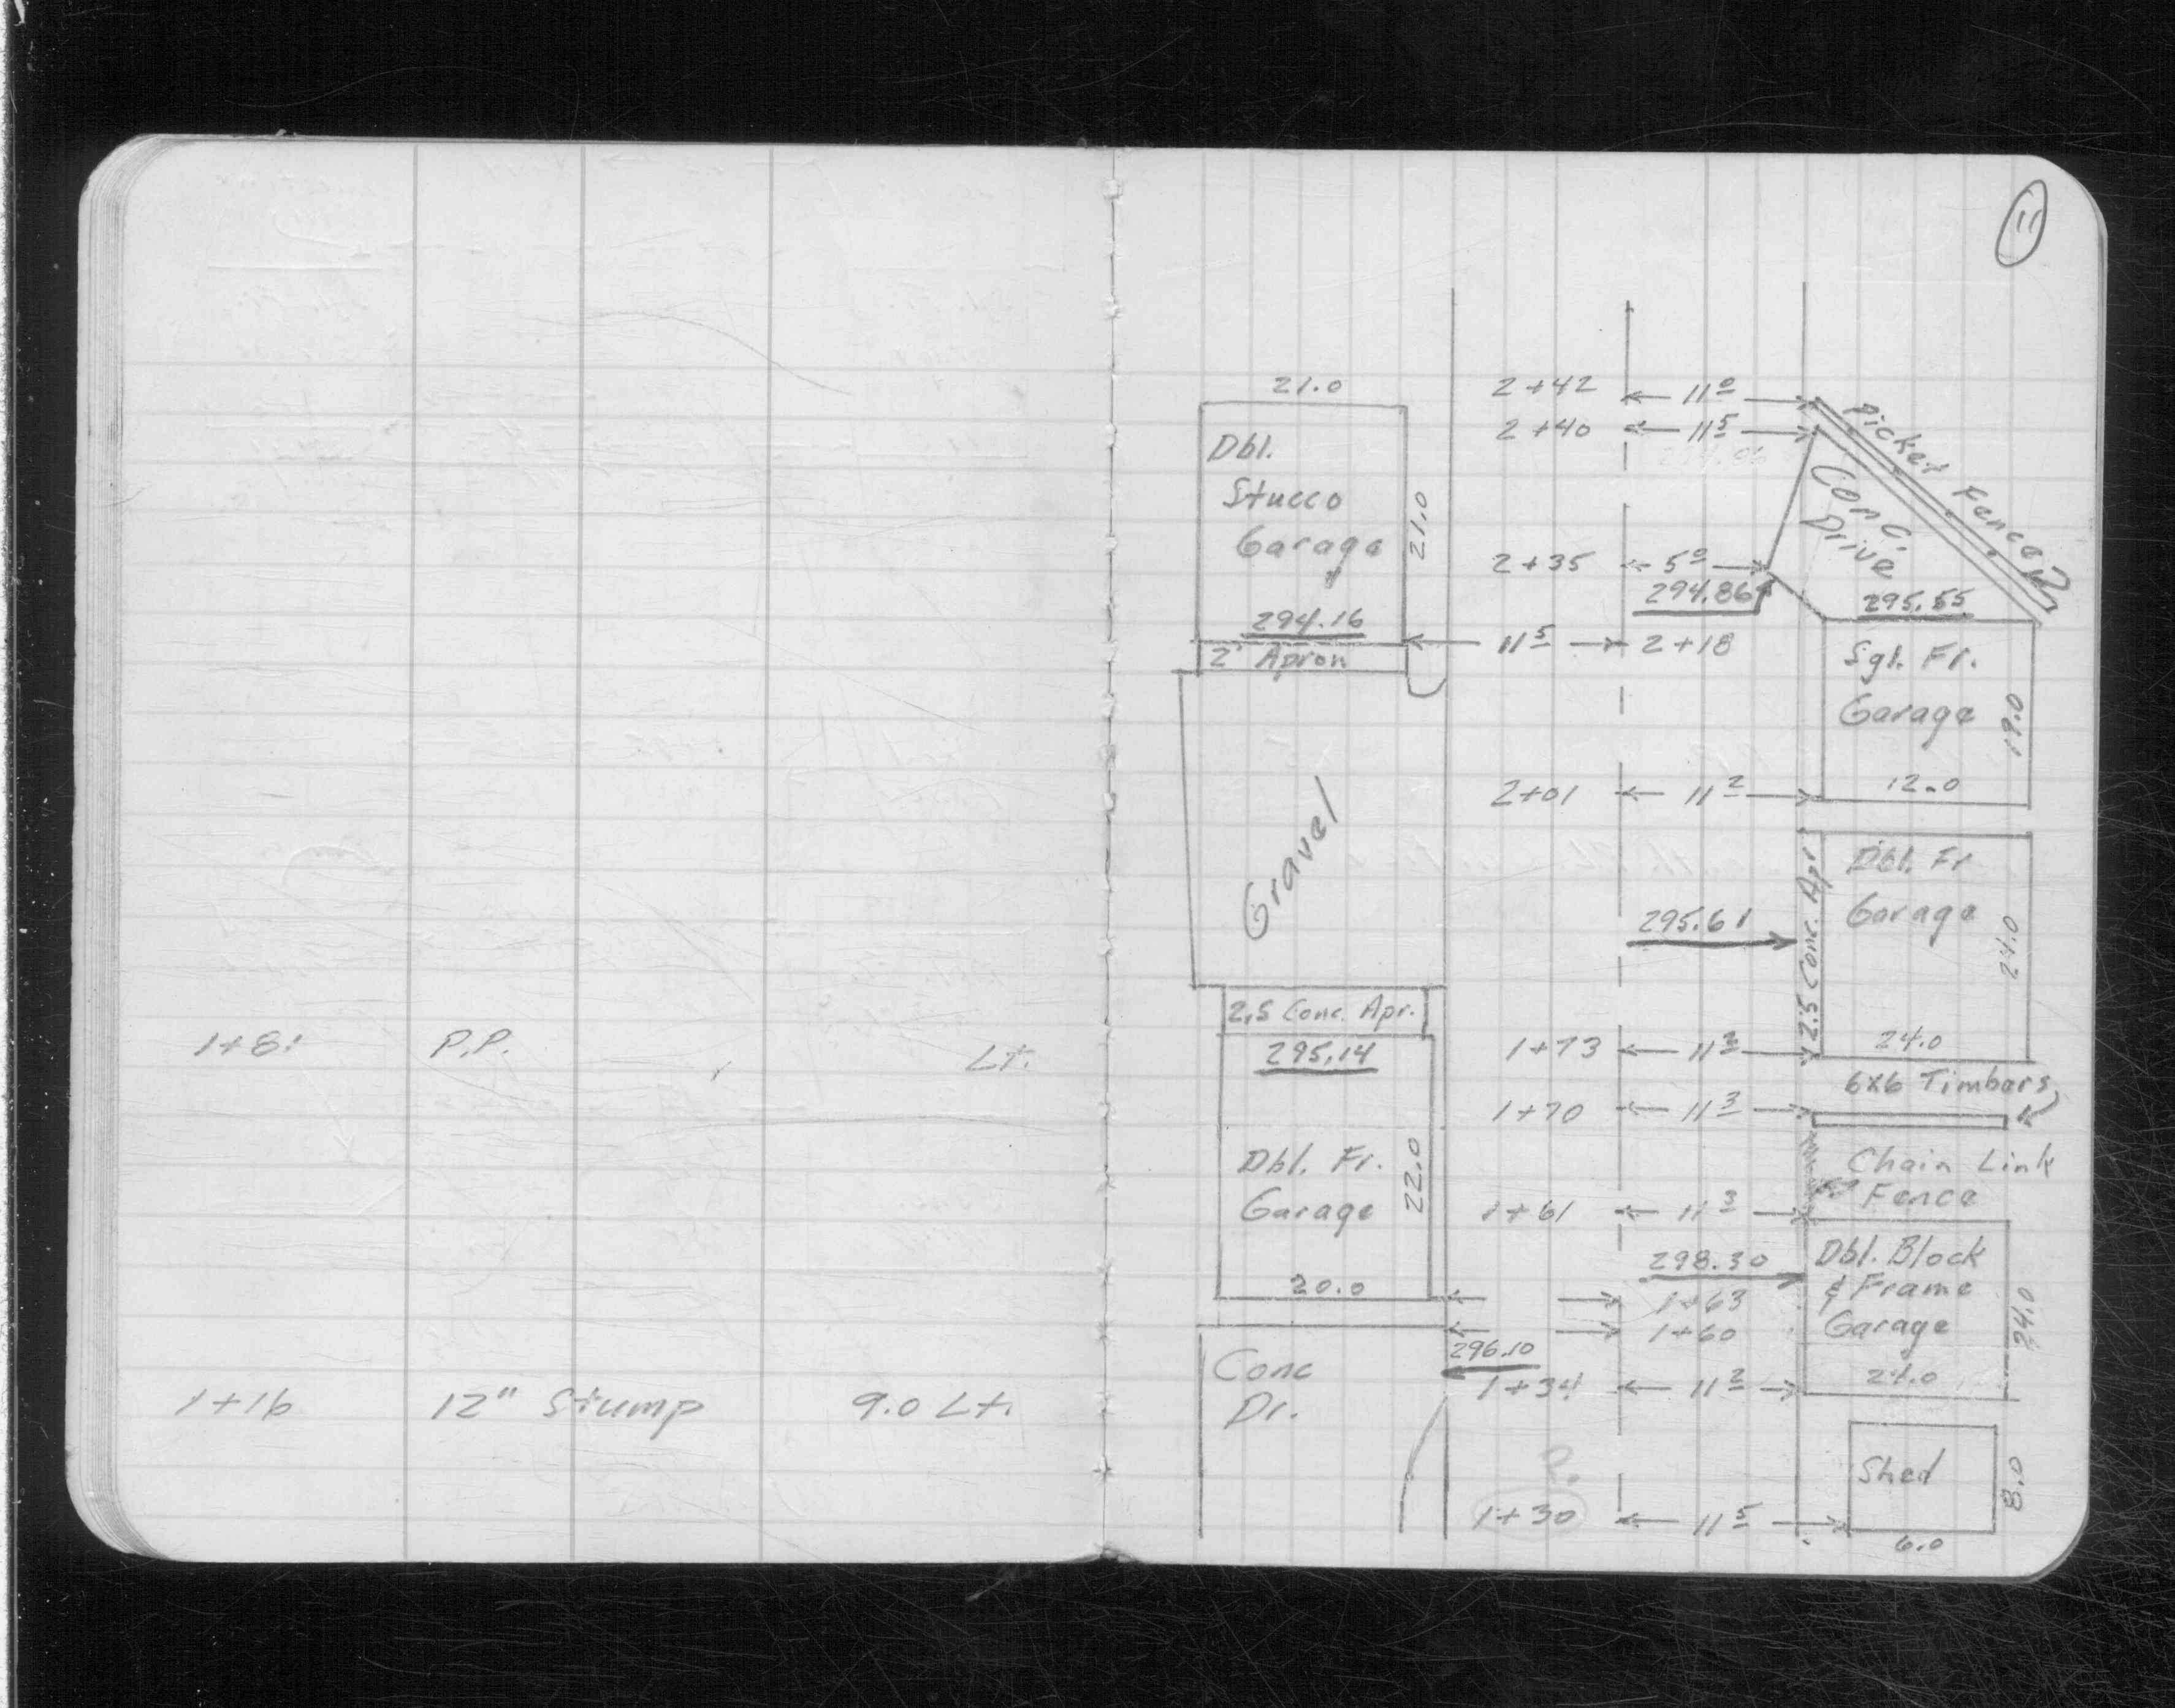 1+81 P.P. Lt.
1+16 12" Stump 9.0 Lt.
11
21.0 2+42 11⁰
Dbl. 2+40 11⁵ Picket Fence
Stucco 21.0 Conc.
Garage Drive
2+35 5⁰
294.16 294.86 295.55
2' Apron 11⁵ 2+18 Sgl. Fr.
Garage 19.0
2+01 11² 12.0
Gravel 2.5 Conc. Apr Dbl. Fr
295.61 Garage 24.0
2,5 Conc. Apr.
295.14 1+73 11³ 24.0
6x6 Timbers
1+70 11³
Dbl. Fr. 22.0 Chain Link
Garage 1+61 11³ Fence
298.30 Dbl. Block
20.0 1+63 & Frame 24.0
1+60 Garage
296.10
Conc 1+34 11² 24.0
Dr.
Shed 8.0
1+30 11⁵
6.0